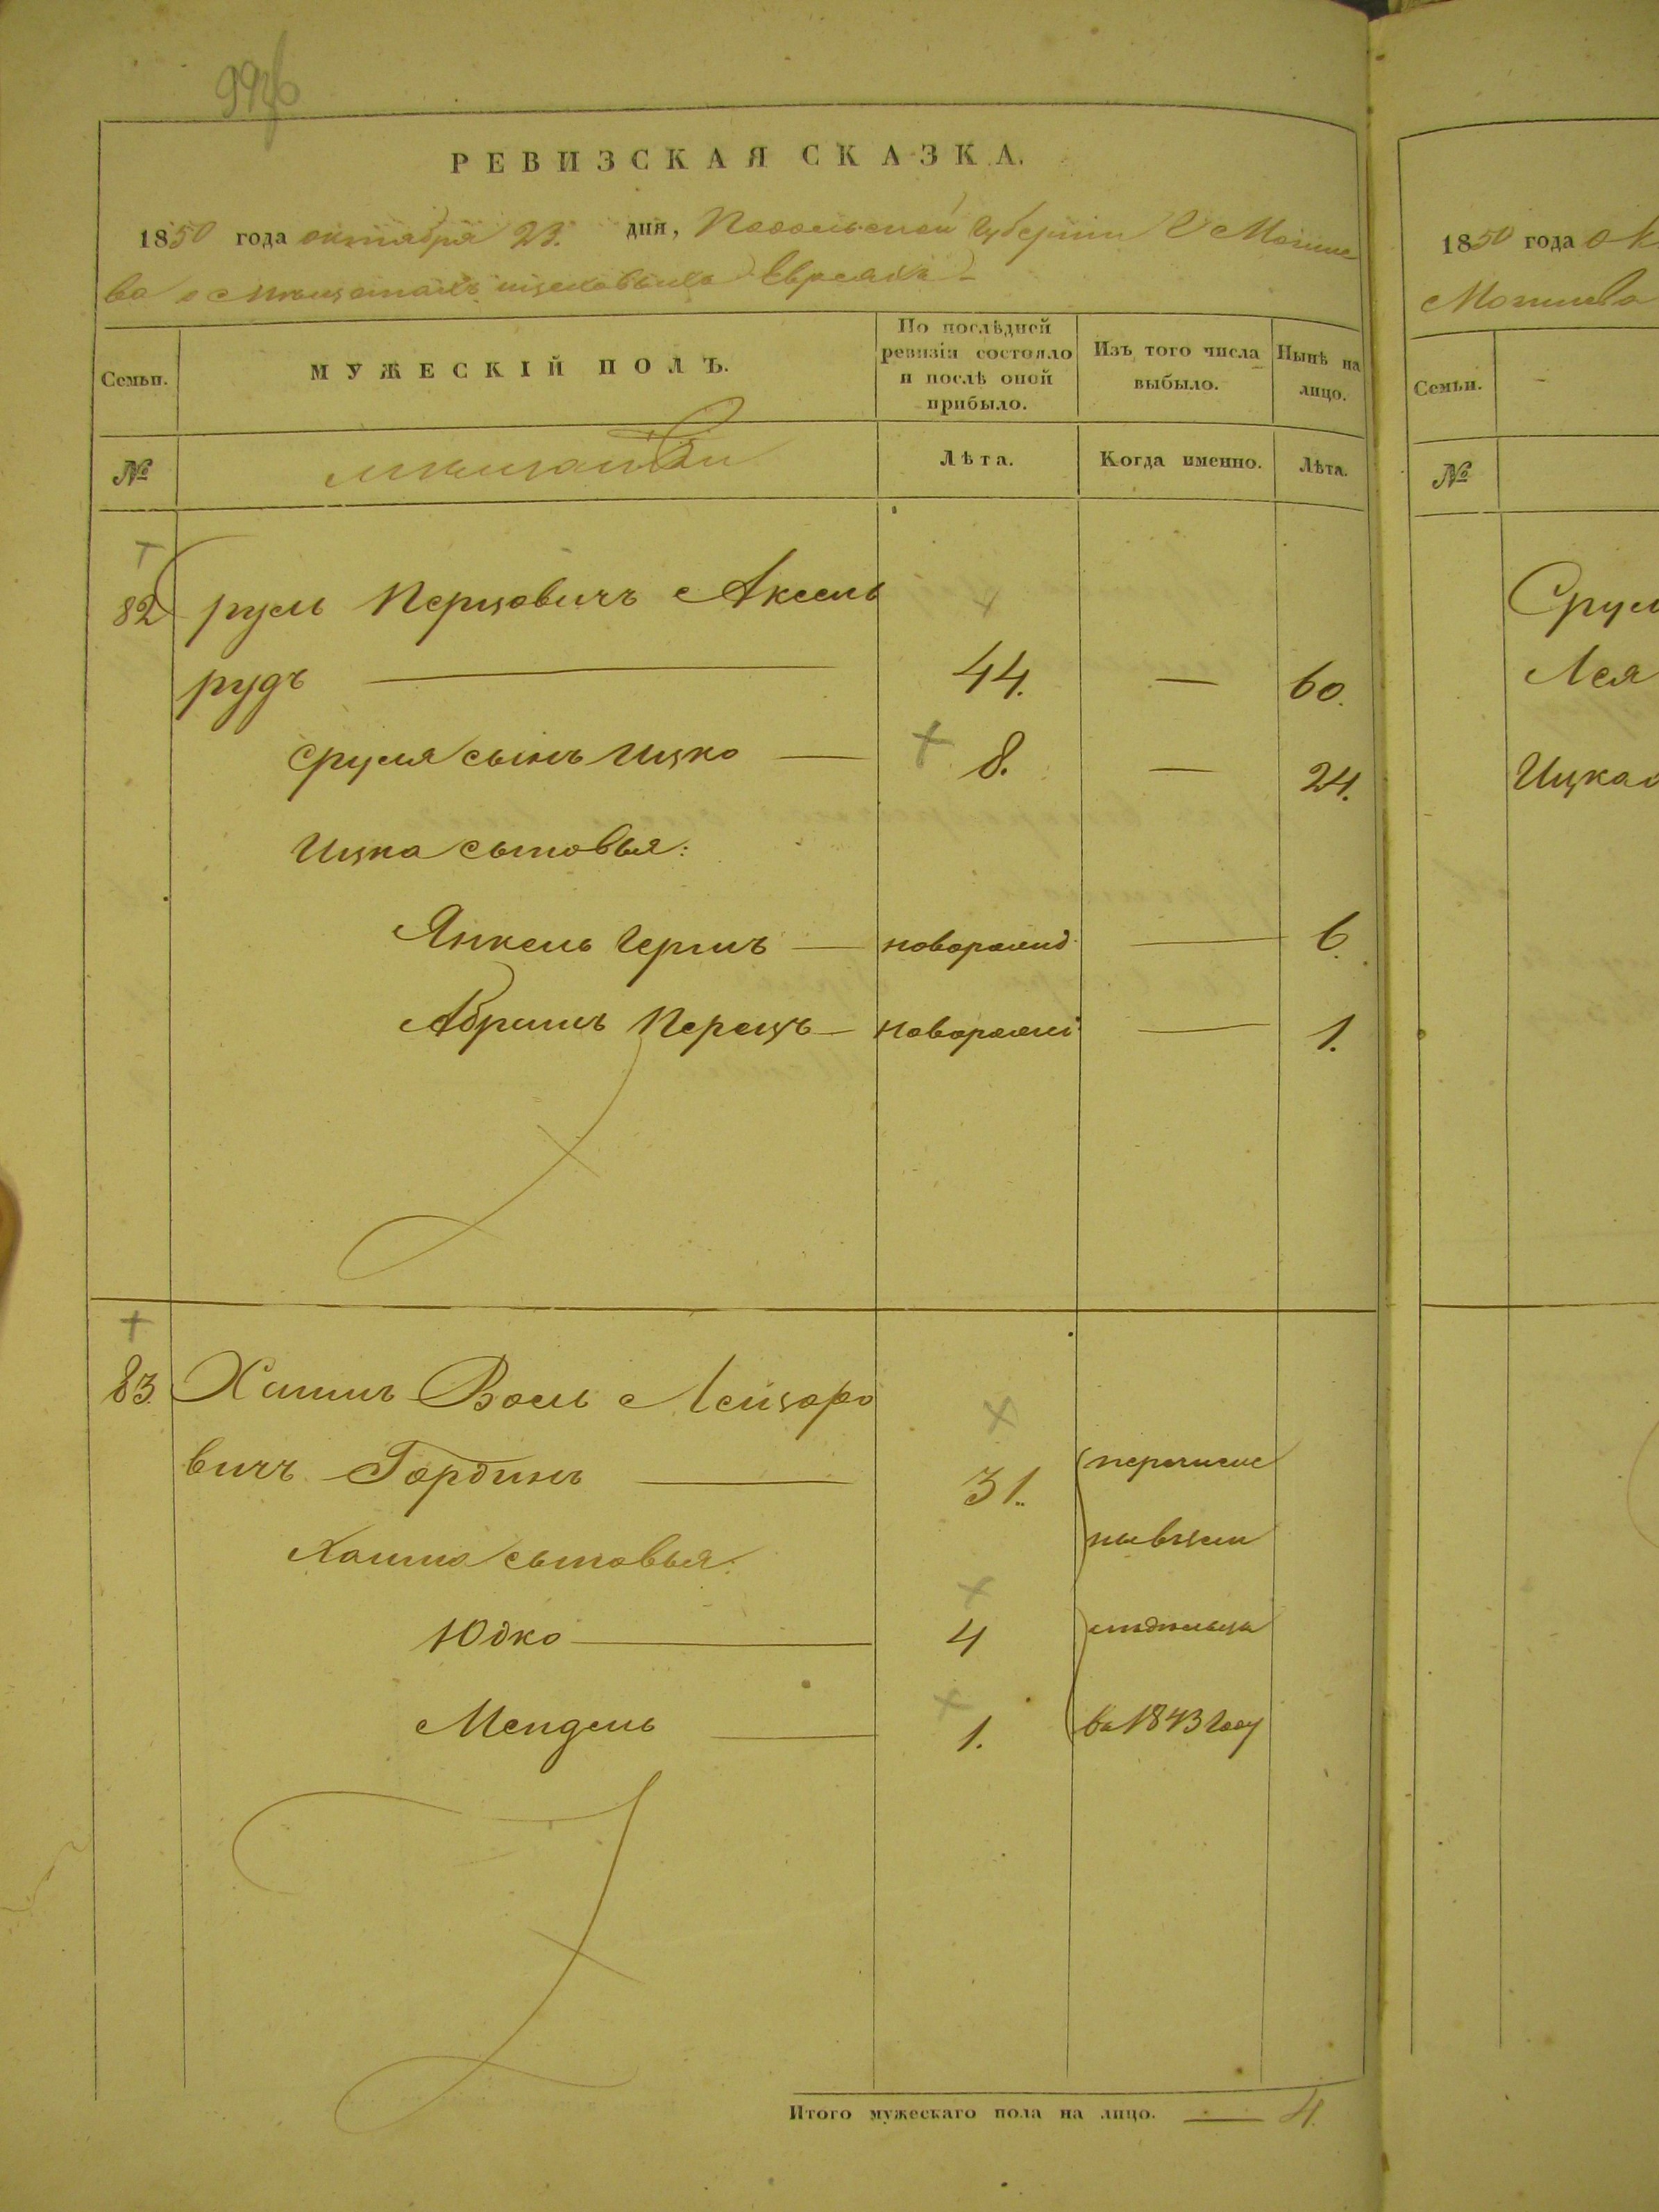 РЕВИЗСКАЯ СКАЗКА.
1850 года октября 23. дня, Подольской Губернии Г Могиле
ва о мѣщанахъ цеховыхъ Евреяхъ
Семьи.
МУЖЕСКІЙ ПОЛЪ.
По послѣдней ревизіи состояло и послѣ оной прибыло.
Изъ того числа выбыло.
Нынѣ на лицо.
№
мѣщане
Лѣта.
Когда именно.
Лѣта.
82 Сруль Перцовичъ Аксель
рудъ — 44. — 60.
Сруля сынъ Ицко — 8. — 24.
Ицка сыновья:
Янкель Гершъ — новорожд — 6.
Абрамъ Перецъ — новорожд — 1.
83. Хаимъ Волъ Лейзоро
вичъ Гординъ — 31. перечисле
Хаима сыновья: ны въ
Юдко — 4
Мендель — 1. въ 1843 году
Итого мужескаго пола на лицо. — 4.
1850 года ок
Могилева
Семьи.
№
Срул
Лея
Ицка